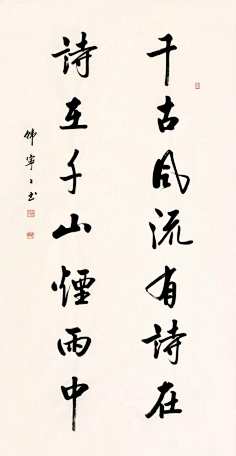 千古風流有詩在
詩在千山煙雨中
韓寧寧書